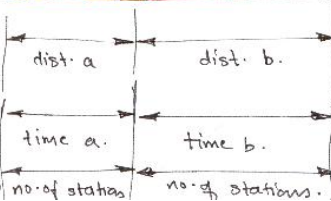 dist. a dist. b.
time a. time b.
no. of station no. of stations.